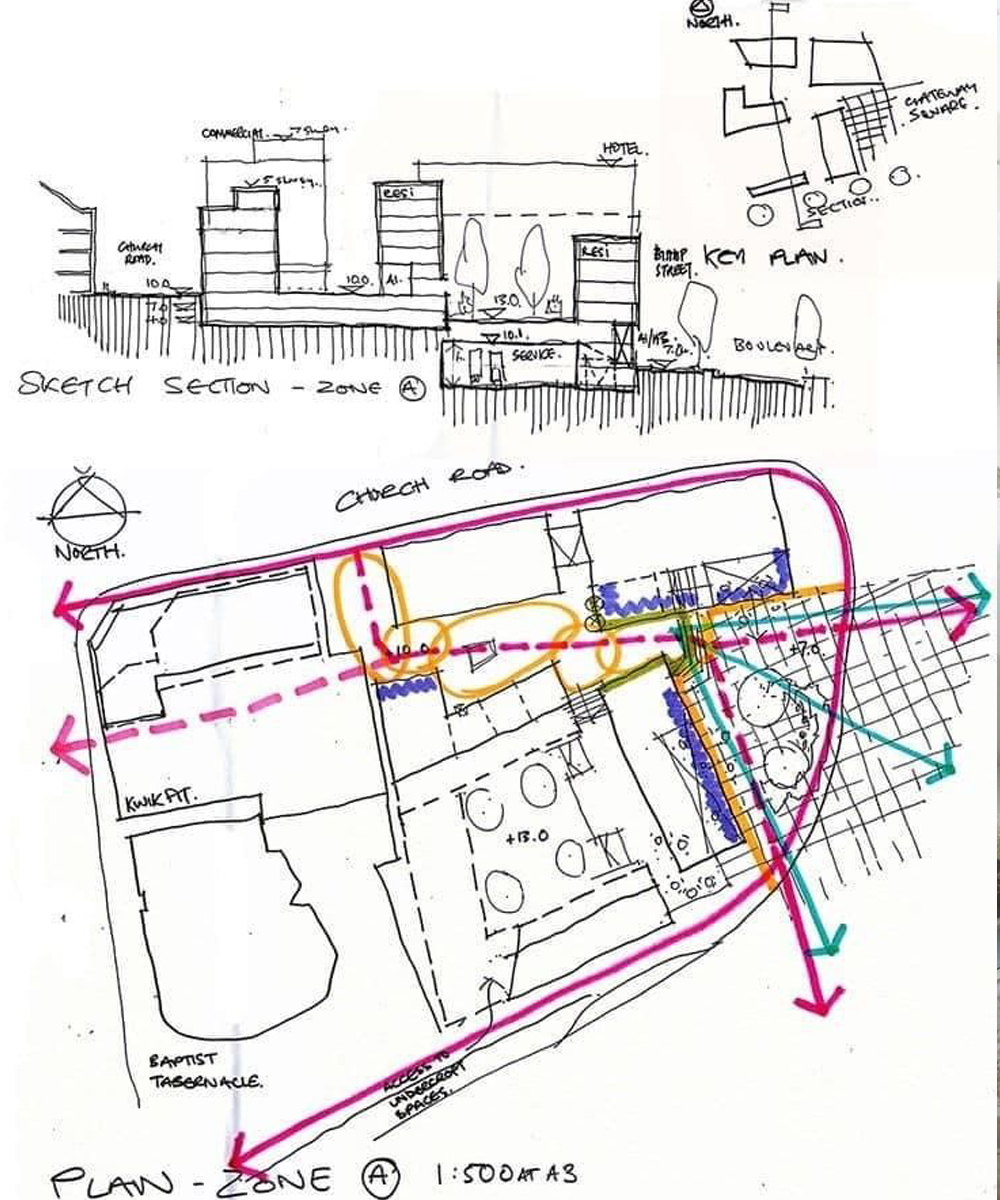 NORTH.
GATEWAY
SQUARE.
SECTION..
KEY PLAN.
COMMERCIAL. 7 STOREY.
5 STOREY..
HOTEL.
RESI
RESI
CHURCH
ROAD.
10.0
7.0
4.0
10.0.
A1.
13.0.
10.1.
SERVICE.
STREET.
A1/A3.
7.0.
BOULEVARD.
SKETCH SECTION - ZONE A
CHURCH ROAD.
NORTH.
+10.0
+7.0
KWIKFIT.
+13.0
BAPTIST
TABERNACLE.
ACCESS TO
UNDERCROFT
SPACES.
PLAN - ZONE A 1:500 AT A3